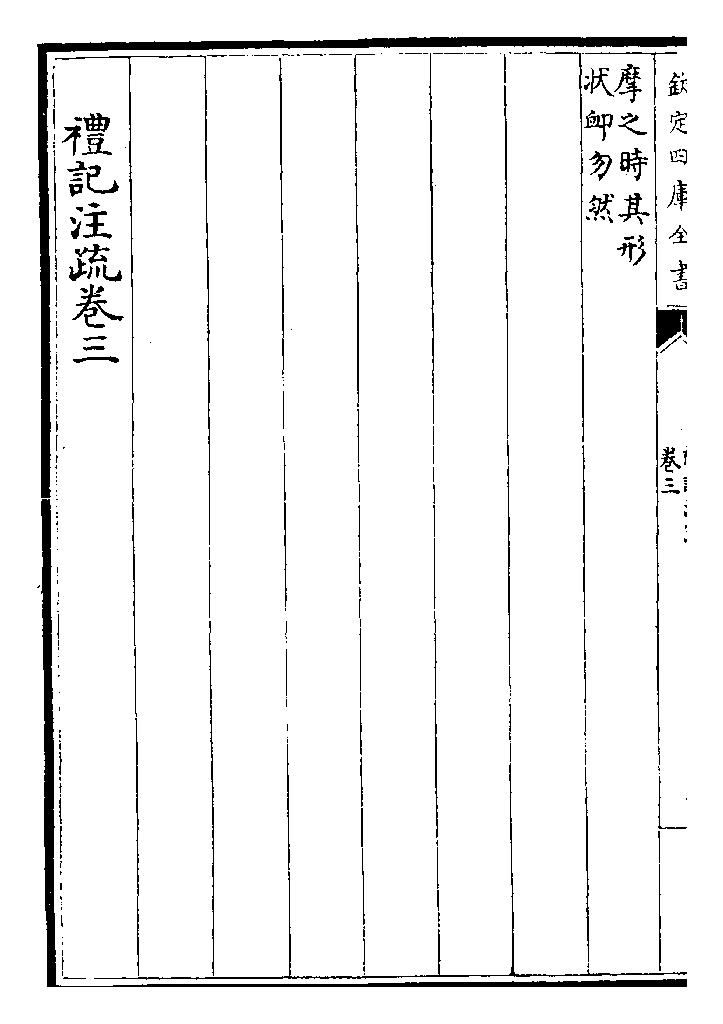 欽定四庫全書
卷三
摩之時其形
状卹勿然
禮記注疏卷三